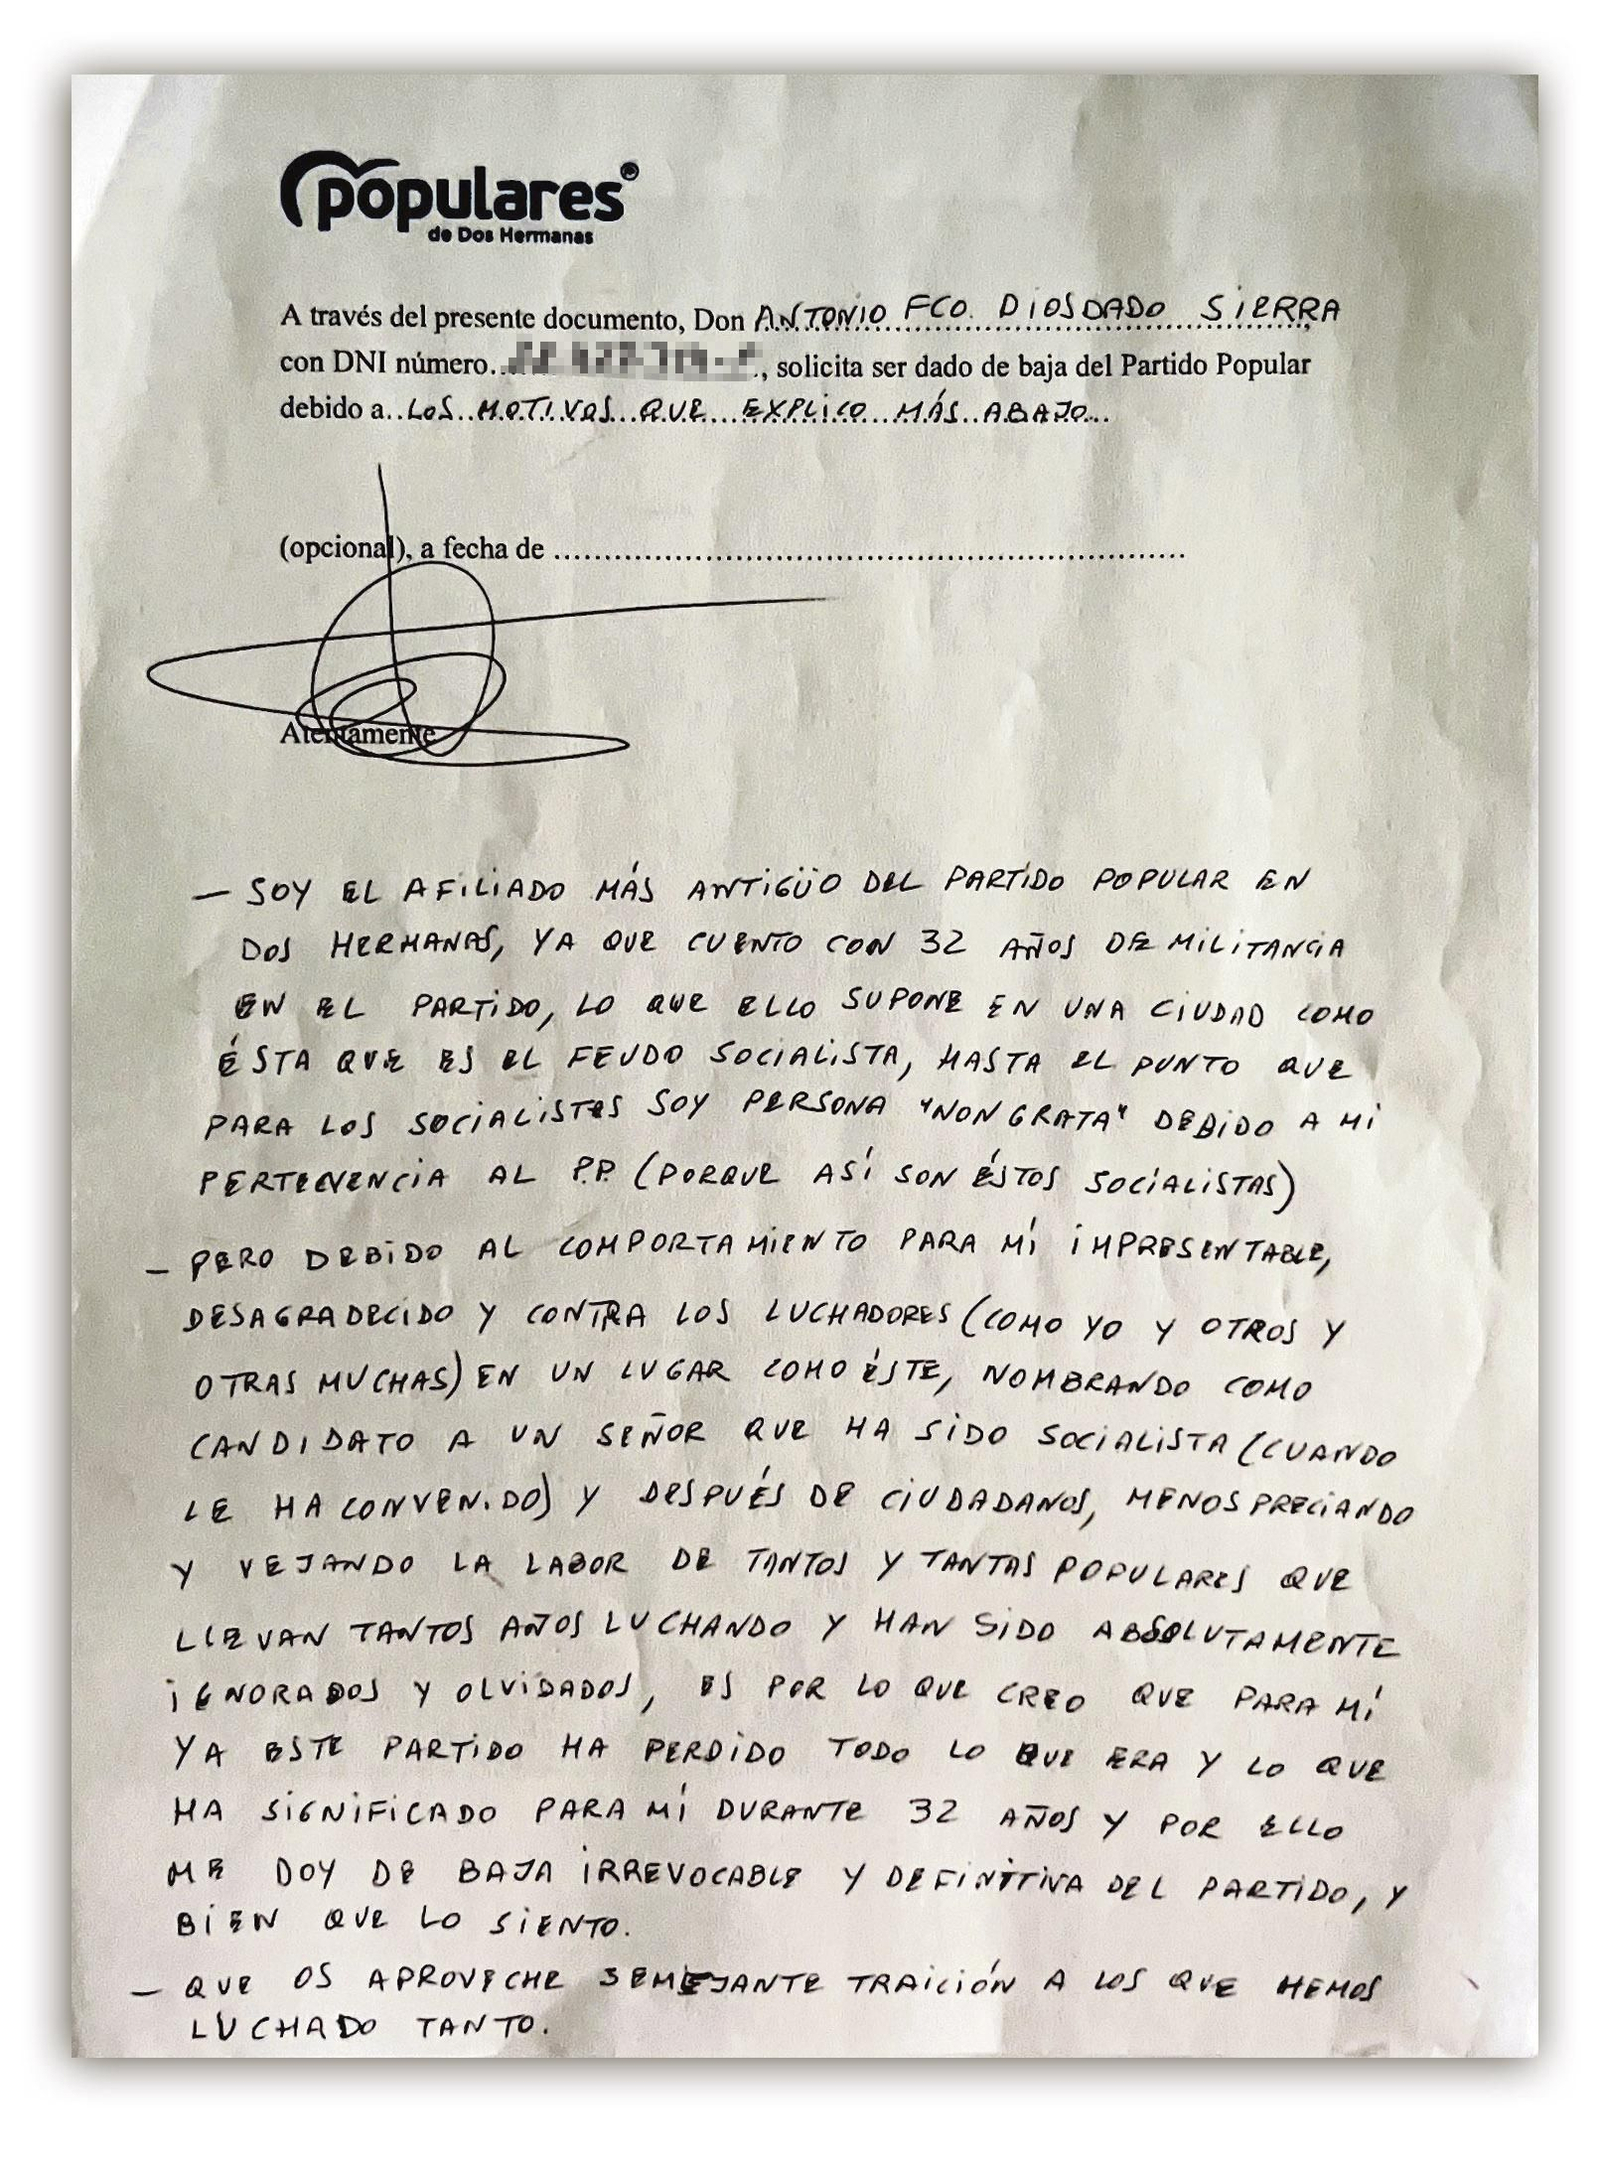 populares
de Dos Hermanas
A través del presente documento, Don ANTONIO FCO. DIOSDADO SIERRA
con DNI número.., solicita ser dado de baja del Partido Popular
debido a..LOS MOTIVOS QUE EXPLICO MÁS ABAJO...
(opcional), a fecha de ..............................................................
Atentamente
- SOY EL AFILIADO MÁS ANTIGÜO DEL PARTIDO POPULAR EN
DOS HERMANAS, YA QUE CUENTO CON 32 AÑOS DE MILITANCIA
EN EL PARTIDO, LO QUE ELLO SUPONE EN UNA CIUDAD COMO
ÉSTA QUE ES EL FEUDO SOCIALISTA, HASTA EL PUNTO QUE
PARA LOS SOCIALISTES SOY PERSONA "NON GRATA" DEBIDO A MI
PERTENENCIA AL P.P. (PORQUE ASÍ SON ÉSTOS SOCIALISTAS)
- PERO DEBIDO AL COMPORTAMIENTO PARA MÍ IMPRESENTABLE,
DESAGRADECIDO Y CONTRA LOS LUCHADORES (COMO YO Y OTROS Y
OTRAS MUCHAS) EN UN LUGAR COMO ÉSTE, NOMBRANDO COMO
CANDIDATO A UN SEÑOR QUE HA SIDO SOCIALISTA (CUANDO
LE HA CONVENIDO) Y DESPUÉS DE CIUDADANOS, MENOSPRECIANDO
Y VEJANDO LA LABOR DE TANTOS Y TANTAS POPULARES QUE
LLEVAN TANTOS AÑOS LUCHANDO Y HAN SIDO ABSOLUTAMENTE
IGNORADOS Y OLVIDADOS, ES POR LO QUE CREO QUE PARA MÍ
YA ESTE PARTIDO HA PERDIDO TODO LO QUE ERA Y LO QUE
HA SIGNIFICADO PARA MÍ DURANTE 32 AÑOS Y POR ELLO
ME DOY DE BAJA IRREVOCABLE Y DEFINITIVA DEL PARTIDO, Y
BIEN QUE LO SIENTO.
- QUE OS APROVECHE SEMEJANTE TRAICIÓN A LOS QUE HEMOS
LUCHADO TANTO.